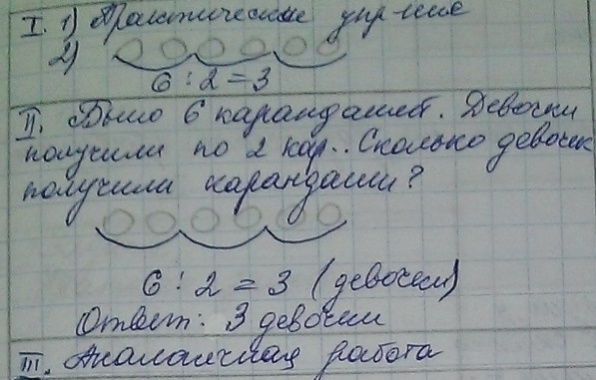 I. 1) Практическое упр-ние
2)
6 : 2 = 3
II. Было 6 карандашей. Девочки
получили по 2 кар.. Сколько девочек
получили карандаши?
6 : 2 = 3 (девочки)
Ответ: 3 девочки
III. Аналогичная работа